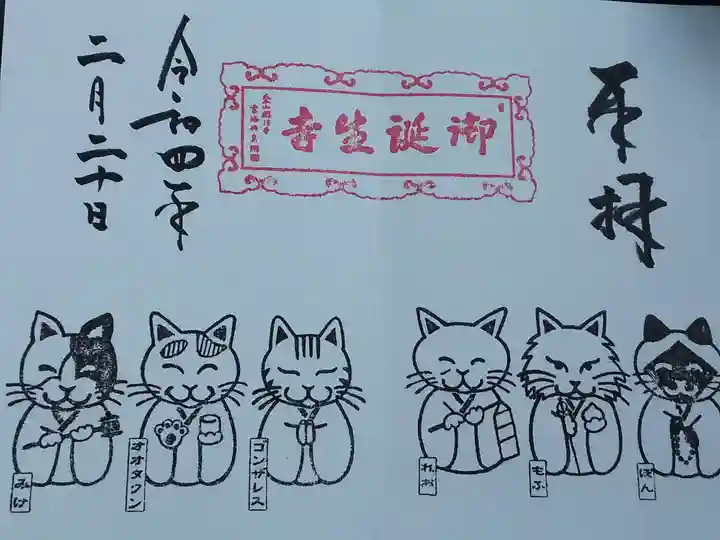 奉拝
御誕生寺
令和四年
二月二十日
みけ
オオタワン
ゴンザレス
れお
もふ
ぽん